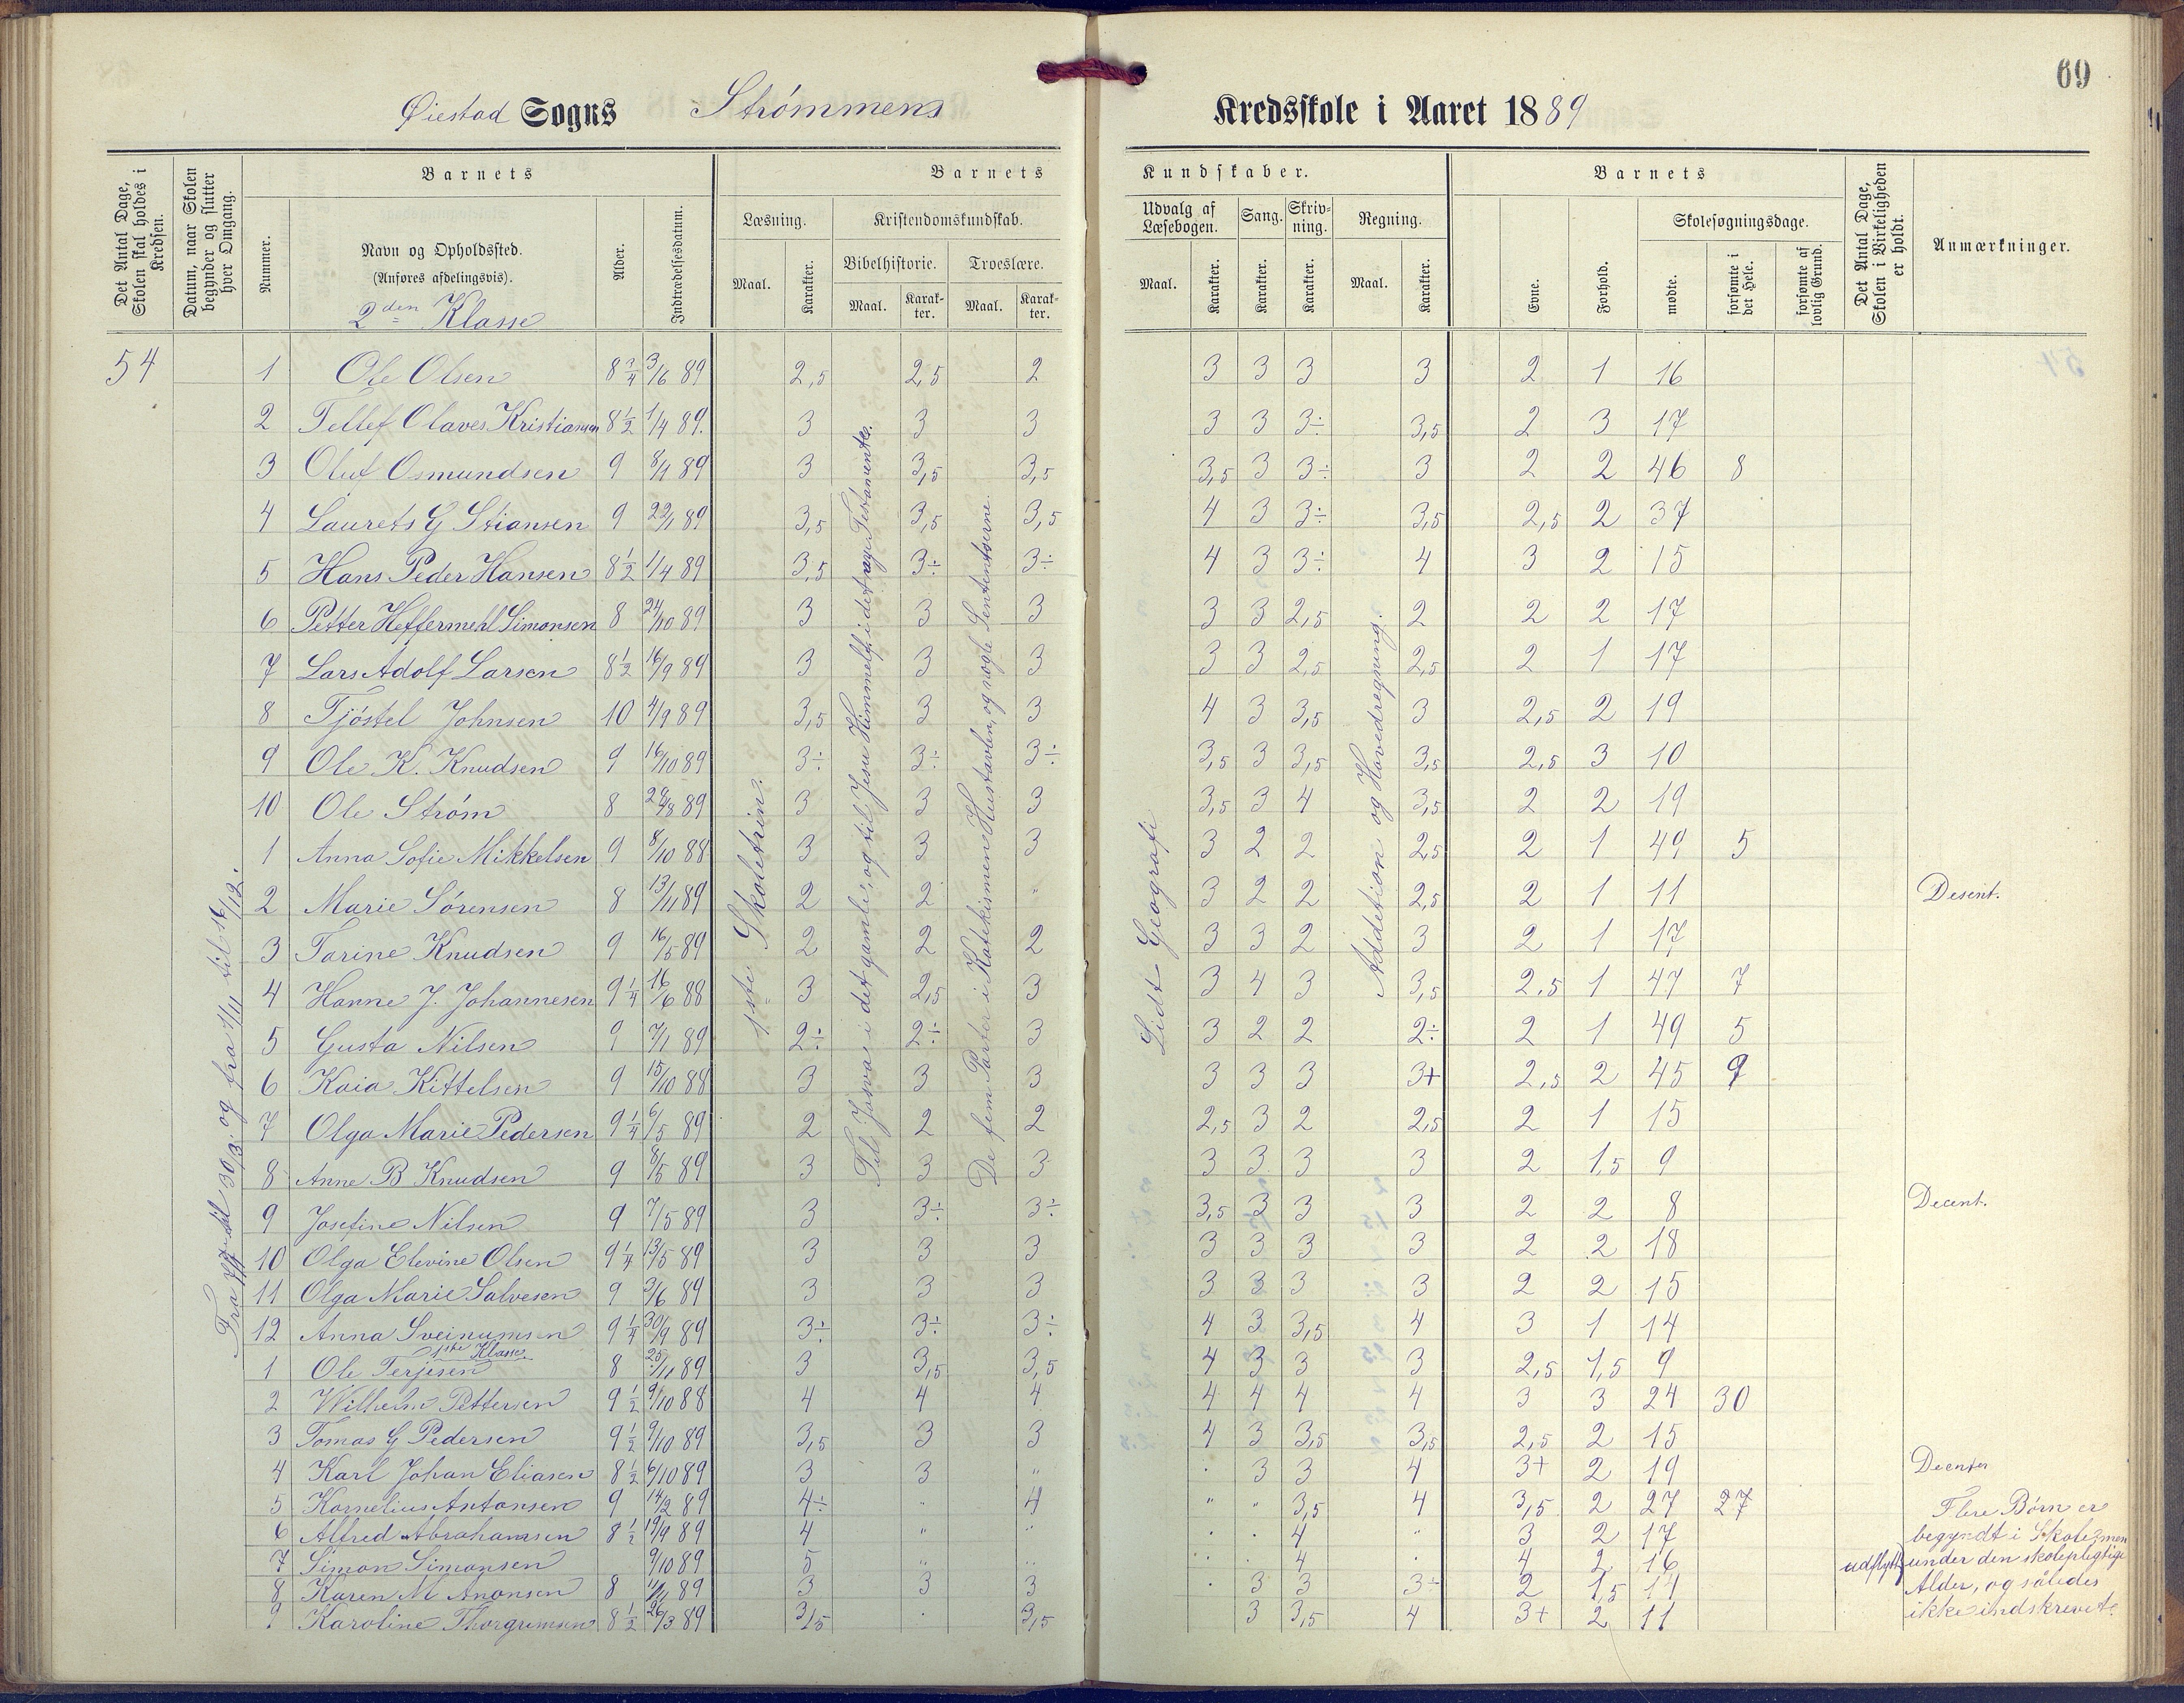 69
Øiestad Sogns Strømmens Kredsskole i Aaret 1889
Det Antal Dage, Skolen skal holdes i Kredsen.
Datum, naar Skolen begynder og slutter hver Omgang.
Barnets
Nummer.
Navn og Opholdssted.
(Anføres afdelingsvis).
2den Klasse
Alder.
Indtrædelsesdatum.
Barnets Kundskaber.
Læsning.
Maal.
Karakter.
Kristendomskundskab.
Bibelhistorie.
Maal.
Karakter.
Troeslære.
Maal.
Karakter.
Udvalg af Læsebogen.
Maal.
Karakter.
Sang.
Karakter.
Skrivning.
Karakter.
Regning.
Maal.
Karakter.
Barnets
Evne.
Forhold.
Skolesøgningsdage.
mødte.
forsømte i det Hele.
forsømte af lovlig Grund.
Det Antal Dage, Skolen i Virkeligheden er holdt.
Anmærkninger.
54
1 Ole Olsen 8 3/4 3/6 89 2,5 2,5 2 3 3 3 3 2 1 16
2 Tellef Olaves Kristiansen 8 1/2 1/4 89. 3 3 3 3 3 3÷ 3,5 2 3 17
3 Oluf Osmundsen 9 8/1 89 3 3,5 3,5 3,5 3 3÷ 3 2 2 46 8
4 Laurets G Stiansen 9 22/1 89 3,5 3,5 3,5 4 3 3÷ 3,5 2,5 2 37
5 Hans Peder Hansen 8 1/2 1/4 89 3,5 3÷ 3÷ 4 3 3÷ 4 3 2 15
6 Petter Heffermehl Simonsen 8 24/10 89 3 3 3 3 3 2,5 2 2 2 17
7 Lars Adolf Larsen 8 1/2 16/9 89 3 3 3 3 3 2,5 2,5 2 1 17
8 Tjøstel Johnsen 10 4/9 89 3,5 3 3 4 3 3,5 3 2,5 2 19
9 Ole K. Knudsen 9 16/10 89 3÷ 3÷ 3÷ 3,5 3 3,5 3,5 2,5 3 10
10 Ole Strøm 8 89 3 3 3 3,5 3 4 3,5 2 2 19
1 Anna Sofie Mikkelsen 9 8/10 88 3 3 3 3 2 2 2,5 2 1 49 5
2 Marie Sørensen 8 13/11 89 2 2 " 3 2 2 2,5 2 1 11 Desent.
3 Tarine Knudsen 9 16/5 89 2 2 2 3 3 2 3 2 1 17
4 Hanne J. Johannesen 9 1/4 16/6 88 3 2,5 3 3 4 3 3,5 2,5 1 47 7
5 Gusta Nilsen 9 7/1 89 2÷ 2÷ 3 3 2 2 2÷ 2 1 49 5
6 Kaia Kittelsen 9 15/10 88 3 3 3 3 3 3 3+ 2,5 2 45 9
7 Olga Marie Pedersen 9 1/4 6/5 89 2 2 2 2,5 3 2 2,5 2 1 15
8 Anne B Knudsen 9 8/5 89 3 3 3 3 3 3 3 2 1,5 9
9 Josefine Nilsen 9 7/5 89 3 3÷ 3÷ 3,5 3 3 3 2 2 8 Decent.
10 Olga Elevine Olsen 9 1/4 13/5 89 3 3 3 3 3 3 3 2 2 18
11 Olga Marie Salvesen 9 3/6 89 3 3 3 3 3 3 3 2 2 15
12 Anna Sveinumsen 9 1/4 30/9 89 3÷ 3÷ 3÷ 4 3 3,5 4 3 1 14
1ste Klasse
1 Ole Terjesen 8 25/11 89 3 3,5 3,5 4 3 3 3 2,5 1,5 9
2 Wilhelm Pettersen 9 1/2 9/10 88 4 4 4 4 4 4 4 3 3 24 30
3 Tomas G Pedersen 9 1/2 9/10 89 3,5 3 3 4 3 3,5 3,5 2,5 2 15
4 Karl Johan Eliasen 8 1/2 6/10 89 3 3 " . 3 3 4 3+ 2 19
5 Kornelius Antonsen 9 14/2 89 4÷ " 4 " " 3,5 4 3,5 2 27 27
6 Alfred Abrahamsen 8 1/2 19/4 89 4 " " . . 4 " 3 2 17
7 Simon Simonsen 9/10 89 5 " " " . 4 . 4 2 16 udflyttet
8 Karen M Anonsen 8 11/11 89 3 3 3 . 3 3 3÷ 2 1,5 11
9 Karoline Thorgrimsen 8 1/2 26/3 89 3,5 . 3,5 3 3,5 4 3+ 2 11
Flere Børn er
begyndt i Skolen men
under den skolepligtige
Alder, og således
ikke indskrevet.
til 30/3. og fra 1/11 til 16/12.
1ste Skoletrin.
Til Josva i det gamle, og til Jesu Himmelf. i det nye Testamente.
De fem Parter i Katekismen Hustavlen, og nogle Sententserne
Lidt Geografi
Addetion og Hovedregning.